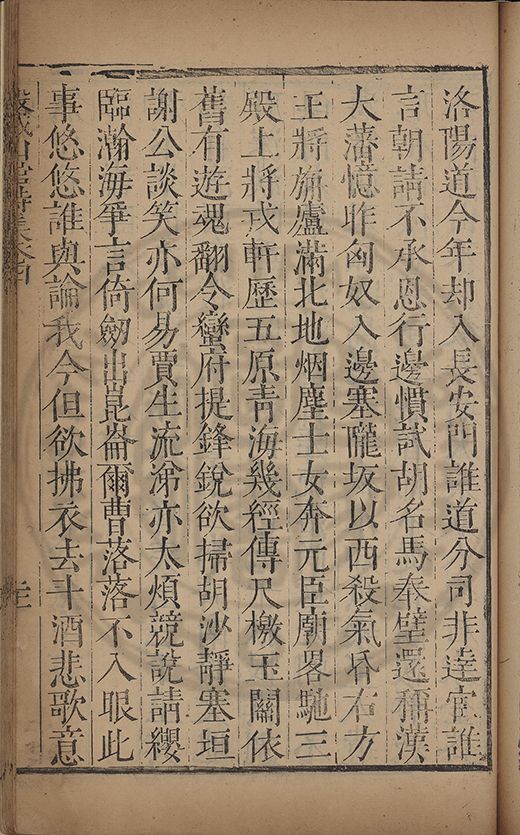 洛陽道今年却入長安門誰道分司非達官誰
言朝請不承恩行邊慣試胡名馬奉璧還稱漢
大藩憶昨匈奴入邊塞隴坂以西殺氣昏右方
王將旃廬滿北地烟塵士女奔元臣廟畧馳三
殿上將戎軒歷五原青海幾經傳尺檄玉關依
舊有遊魂翻令蠻府提鋒銳欲掃胡沙靜塞垣
謝公談笑亦何易賈生流涕亦太煩競說請纓
臨瀚海爭言倚劒出崑崙爾曹落落不入眼此
事悠悠誰與論我今但欲拂衣去斗酒悲歌意